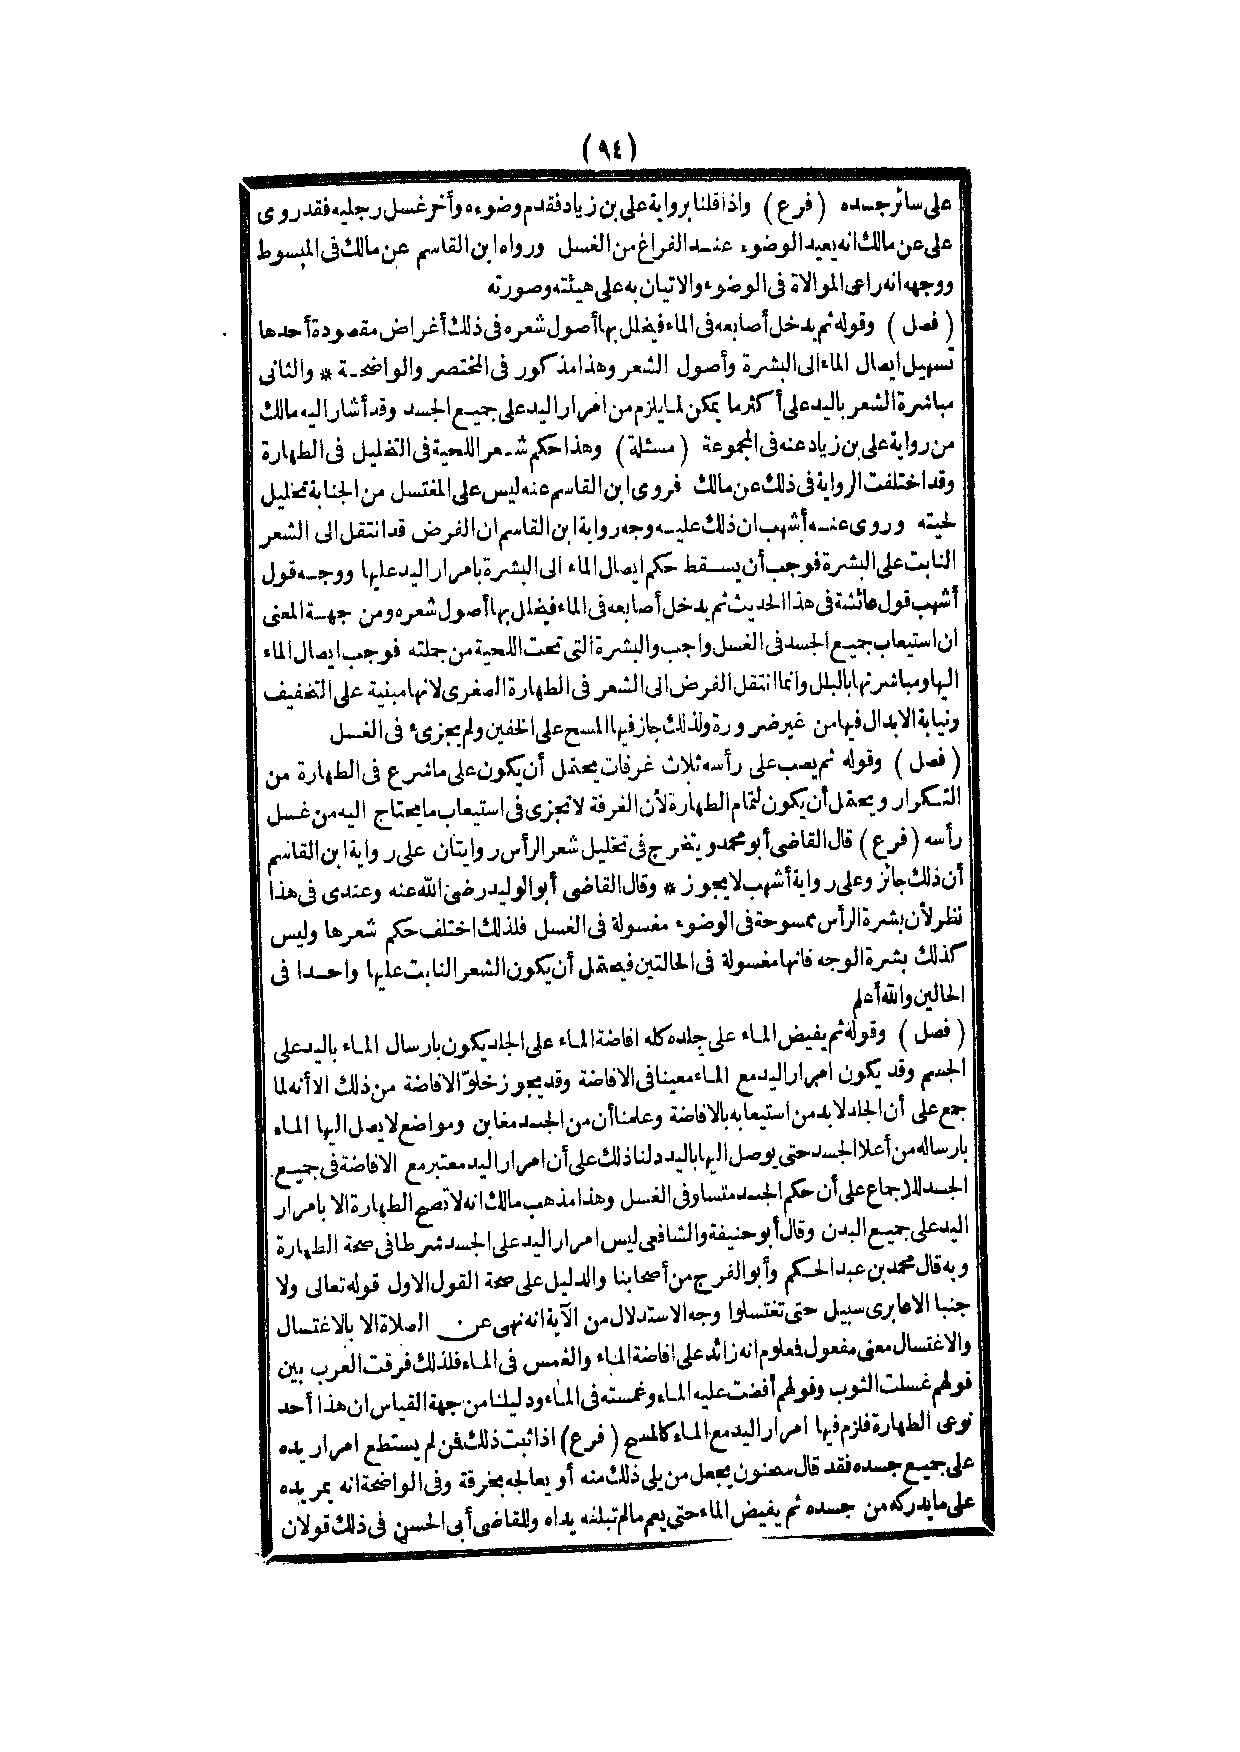 (٩٤)
على سائر جسده (فرع) واذا قلنا برواية على بن زياد فقدم وضوءه وأخر غسل رجليه فقد روى
على عن مالك انه يعيد الوضوء عند الفراغ من الغسل ورواه ابن القاسم عن مالك فى المبسوط
ووجهه انه راعى الموالاة فى الوضوء والاتيان به على هيئته وصورته
(فصل) وقوله ثم يدخل أصابعه فى الماء فيخلل بها أصول شعره فى ذلك أغراض مقصودة أحدها
تسهيل ايصال الماء الى البشرة وأصول الشعر وهذا مذكور فى المختصر والواضحة * والثانى
مباشرة الشعر باليد على أكثر ما يمكن لما يلزم من امرار اليد على جميع الجسد وقد أشار اليه مالك
من رواية على بن زياد عنه فى المجموعة (مسئلة) وهذا حكم شعر اللحية فى التخليل فى الطهارة
وقد اختلفت الرواية فى ذلك عن مالك فروى ابن القاسم عنه ليس على المغتسل من الجنابة تخليل
لحيته وروى عنه أشهب ان ذلك عليه وجه رواية ابن القاسم ان الفرض قد انتقل الى الشعر
النابت على البشرة فوجب أن يسقط حكم ايصال الماء الى البشرة بامرار اليد عليها ووجه قول
أشهب قول عائشة فى هذا الحديث ثم يدخل أصابعه فى الماء فيخلل بها أصول شعره ومن جهة المعنى
ان استيعاب جميع الجسد فى الغسل واجب والبشرة التى تحت اللحية من جملته فوجب ايصال الماء
اليها ومباشرتها بالبلل وانما انتقل الفرض الى الشعر فى الطهارة الصغرى لانها مبنية على التخفيف
ونيابة الابدال فيها من غير ضرورة ولذلك جاز فيها المسح على الخفين ولم يجزئ فى الغسل
(فصل) وقوله ثم يصب على رأسه ثلاث غرفات يحتمل أن يكون على ما شرع فى الطهارة من
التكرار ويحتمل أن يكون لتمام الطهارة لأن الغرفة لا تجزى فى استيعاب ما يحتاج اليه من غسل
رأسه (فرع) قال القاضى أبو محمد ويتخرج فى تخليل شعر الرأس روايتان على رواية ابن القاسم
أن ذلك جائز وعلى رواية أشهب لا يجوز * وقال القاضى أبو الوليد رضى الله عنه وعندى فى هذا
نظر لأن بشرة الرأس ممسوحة فى الوضوء مغسولة فى الغسل فلذلك اختلف حكم شعرها وليس
كذلك بشرة الوجه فانها مغسولة فى الحالتين فيحتمل أن يكون الشعر النابت عليها واحدا فى
الحالين والله أعلم
(فصل) وقوله ثم يفيض الماء على جلده كله افاضة الماء على الجلد يكون بارسال الماء باليد على
الجسم وقد يكون امرار اليد مع الماء معينا فى الافاضة وقد يجوز خلو الافاضة من ذلك الا أنه لما
جمع على أن الجلد لا بد من استيعابه بالافاضة وعلمنا أن من الجسد مغابن ومواضع لا يصل اليها الماء
بارساله من أعلا الجسد حتى يوصل اليها باليد دلنا ذلك على أن امرار اليد معتبر مع الافاضة فى جميع
الجسد للاجماع على أن حكم الجسد متساو فى الغسل وهذا مذهب مالك انه لا تصح الطهارة الا بامرار
اليد على جميع البدن وقال أبو حنيفة والشافعى ليس امرار اليد على الجسد شرطا فى صحة الطهارة
وبه قال محمد بن عبد الحكم وأبو الفرج من أصحابنا والدليل على صحة القول الاول قوله تعالى ولا
جنبا الا عابرى سبيل حتى تغتسلوا وجه الاستدلال من الآية انه نهى عن الصلاة الا بالاغتسال
والاغتسال معنى مفعول فعلوم انه زائد على افاضة الماء والغمس فى الماء فلذلك فرقت العرب بين
قولهم غسلت الثوب وقولهم أفضت عليه الماء وغمسته فى الماء ودليلنا من جهة القياس ان هذا أحد
نوعى الطهارة فلزم فيها امرار اليد مع الماء كالمسح (فرع) اذا ثبت ذلك فمن لم يستطع امرار يده
على جميع جسده فقد قال سحنون يجعل من يلى ذلك منه أو يعالجه بخرقة وفى الواضحة انه يمر يده
على ما يدركه من جسده ثم يفيض الماء حتى يعم ما لم تبلغه يداه وللقاضى أبى الحسن فى ذلك قولان